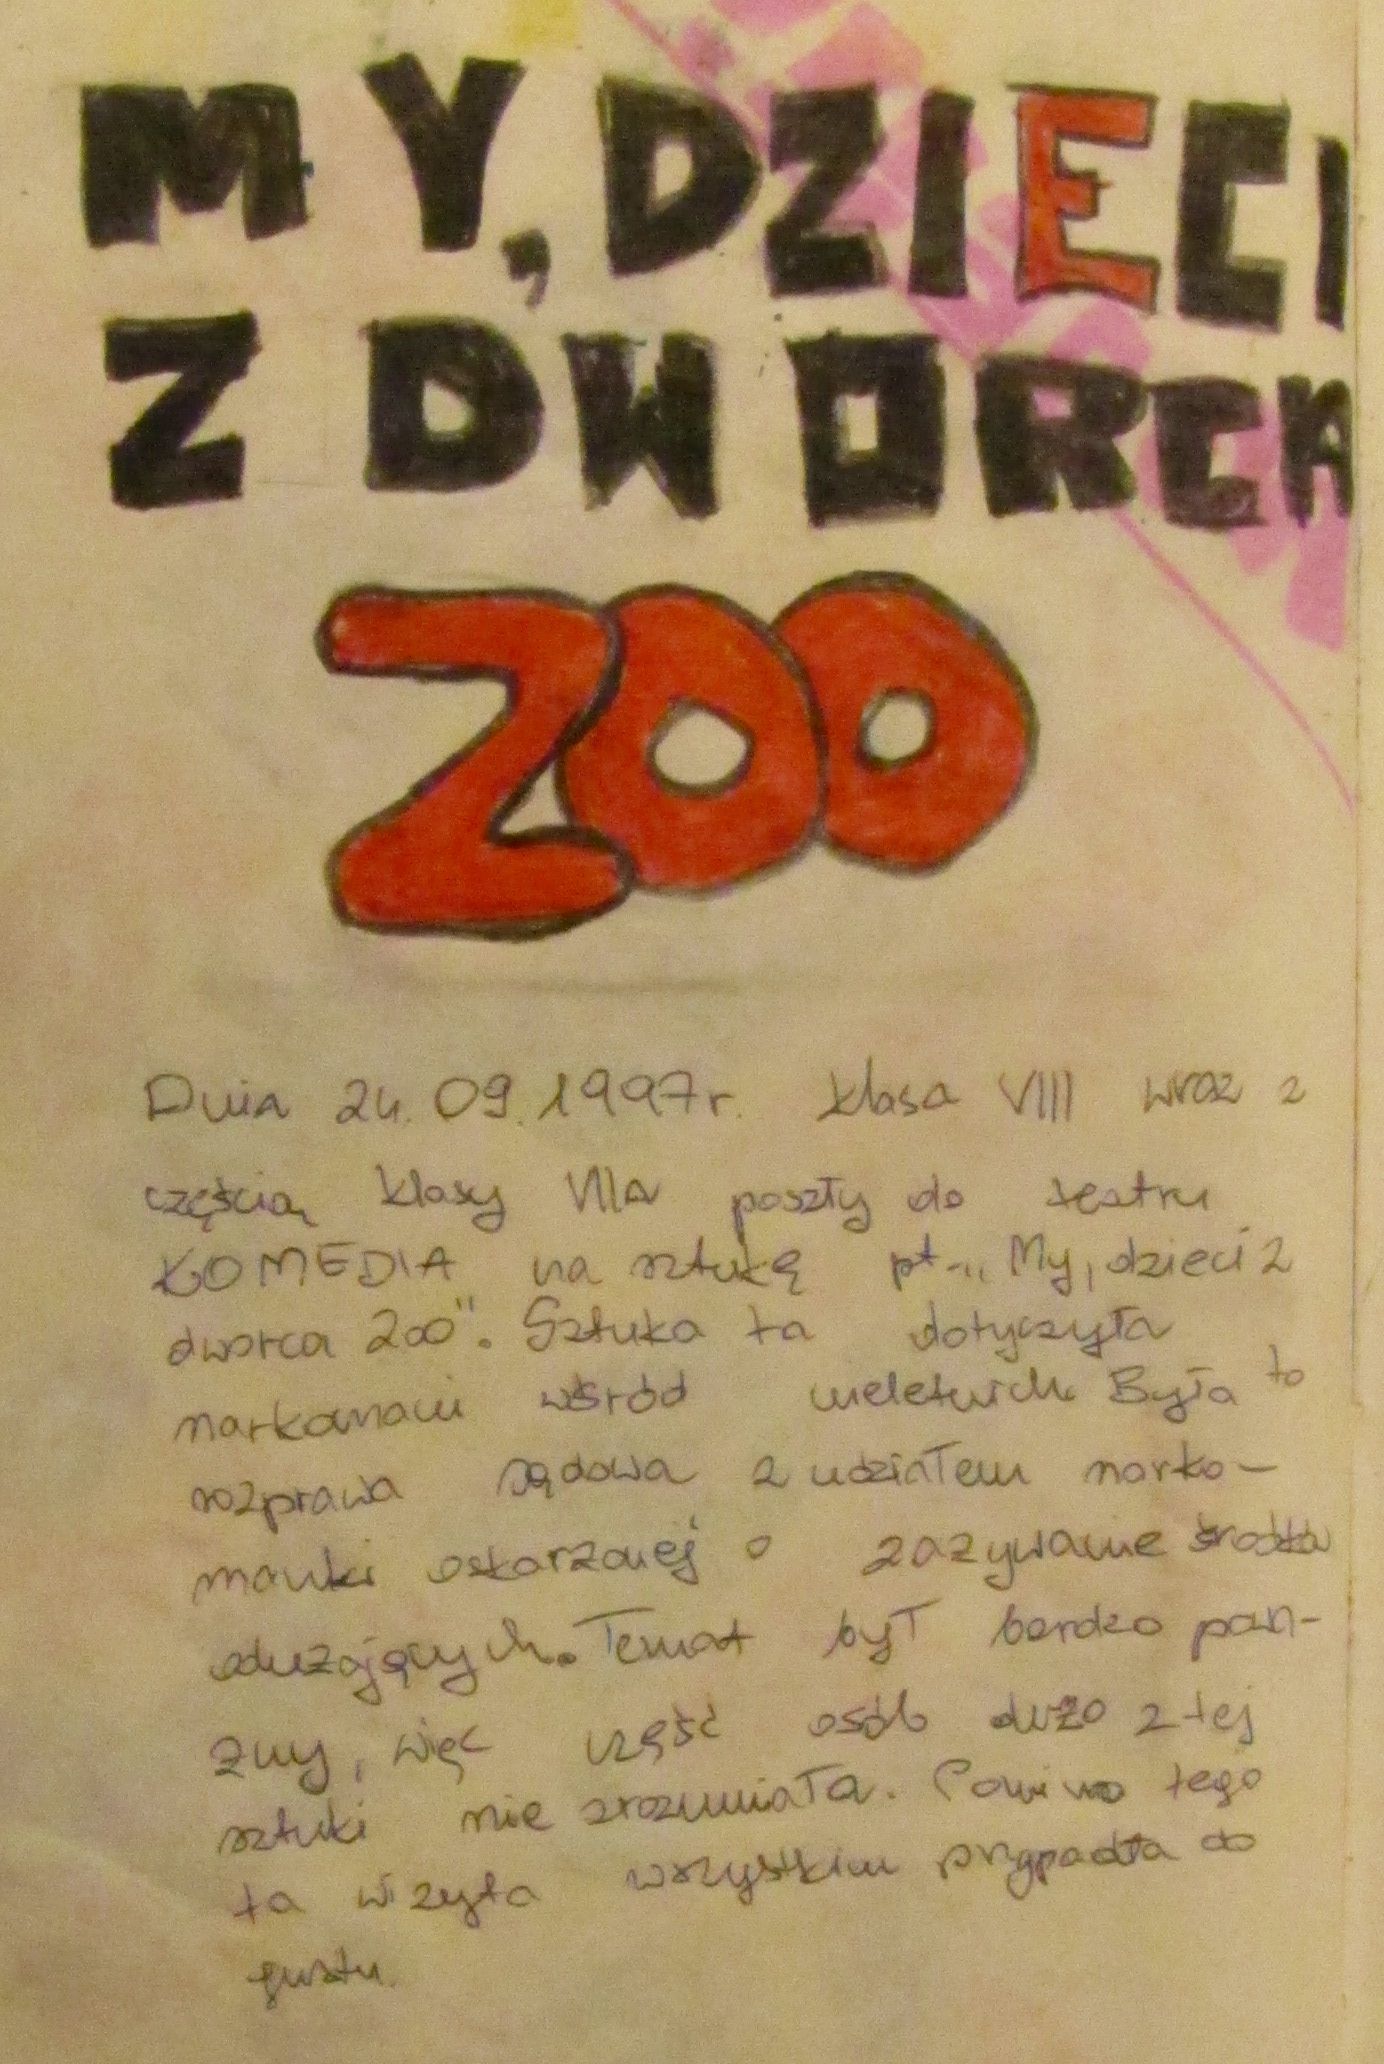 MY, DZIECI
Z DWORCA
ZOO
Dnia 24.09.1997r. klasa VIII wraz z
częścią klasy VIIa poszły do teatru
KOMEDIA na sztukę pt. „My, dzieci z
dworca Zoo". Sztuka ta dotyczyła
narkomani wśród nieletnich. Była to
rozprawa sądowa z udziałem narko-
manki oskarżonej o zażywanie środków
odurzających. Temat był bardzo powa-
żny, więc część osób dużo z tej
sztuki nie zrozumiała. Pomimo tego
ta wizyta wszystkim przypadła do
gustu.